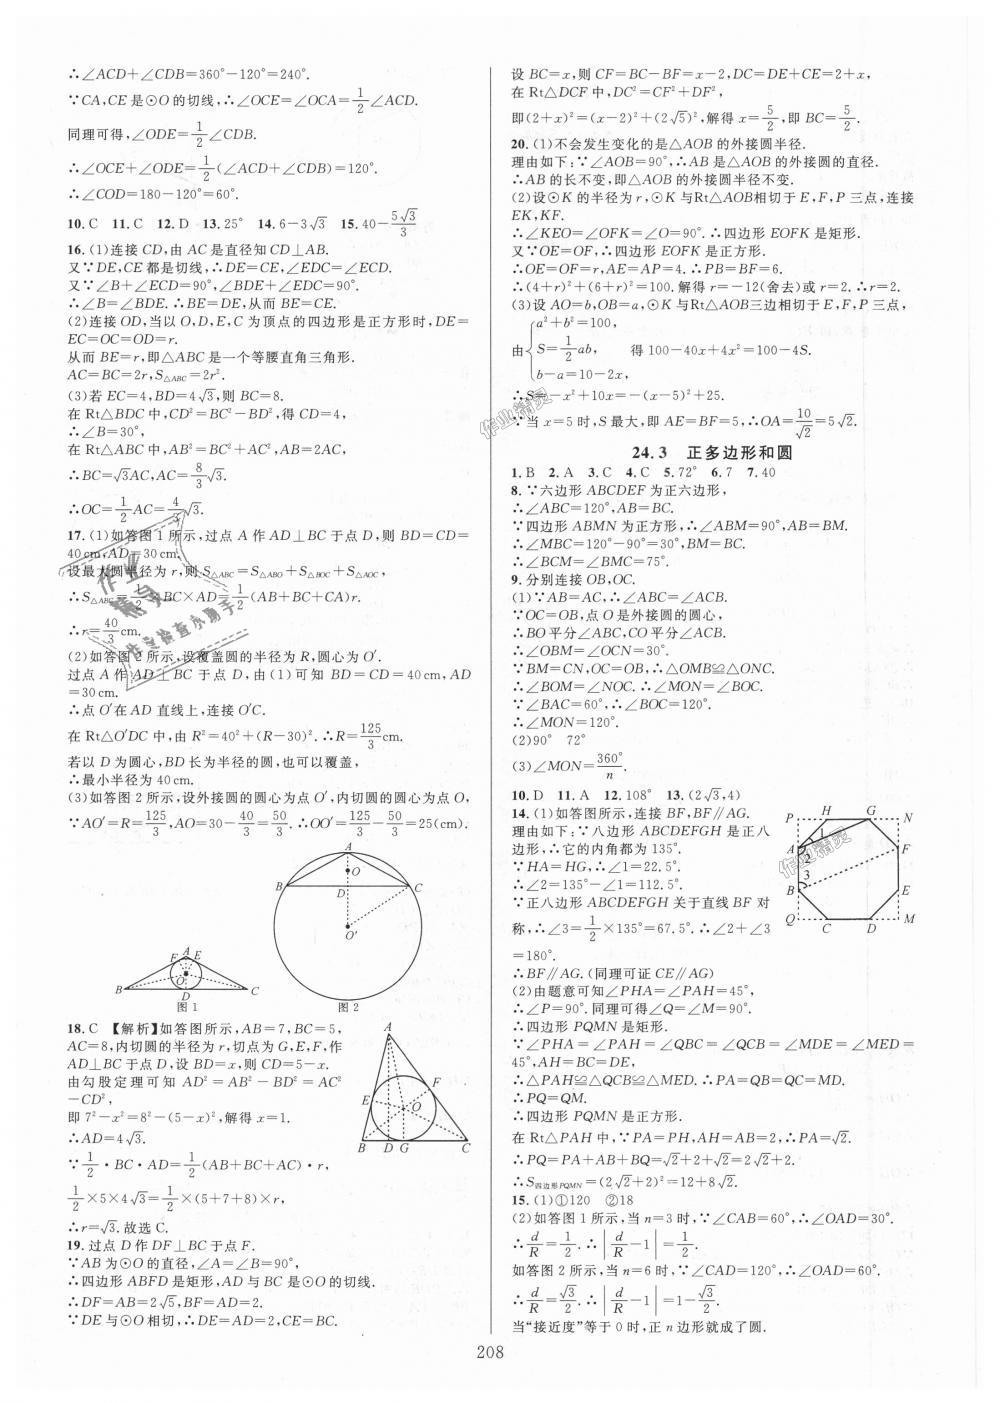 ∴∠ACD+∠CDB=360°-120°=240°.
∵CA,CE是⊙O的切线,∴∠OCE=∠OCA=1/2∠ACD.
同理可得,∠ODE=1/2∠CDB.
∴∠OCE+∠ODE=1/2(∠ACD+∠CDB)=120°.
∴∠COD=180-120°=60°.
10. C 11. C 12. D 13. 25° 14. 6-3√3 15. 40-5√3/3
16. (1)连接CD,由AC是直径知CD⊥AB.
又∵DE,CE都是切线,∴DE=CE,∠EDC=∠ECD.
又∵∠B+∠ECD=90°,∠BDE+∠EDC=90°.
∴∠B=∠BDE.∴BE=DE,从而BE=CE.
(2)连接OD,当以O,D,E,C为顶点的四边形是正方形时,DE=
EC=OC=OD=r.
从而BE=r,即△ABC是一个等腰直角三角形.
AC=BC=2r,S△ABC=2r².
(3)若EC=4,BD=4√3,则BC=8.
在Rt△BDC中,CD²=BC²-BD²,得CD=4,
∴∠B=30°,
在Rt△ABC中,AB²=BC²+AC²,AB=2AC,
∴BC=√3AC,AC=8/3√3.
∴OC=1/2AC=4/3√3.
17. (1)如答图1所示,过点A作AD⊥BC于点D,则BD=CD=
40cm,AD=30cm.
设最大圆半径为r,则S△ABC=S△ABO+S△BOC+S△AOC,
∴S△ABC=1/2×BC×AD=1/2(AB+BC+CA)r.
∴r=40/3cm.
(2)如答图2所示,设覆盖圆的半径为R,圆心为O′.
过点A作AD⊥BC于点D,由(1)可知BD=CD=40cm,AD
=30cm.
∴点O′在AD直线上,连接O′C.
在Rt△O′DC中,由R²=40²+(R-30)².∴R=125/3cm.
若以D为圆心,BD长为半径的圆,也可以覆盖,
∴最小半径为40cm.
(3)如答图2所示,设外接圆的圆心为点O′,内切圆的圆心为点O,
∵AO′=R=125/3,AO=30-40/3=50/3.∴OO′=125/3-50/3=25(cm).
A
O
B
D
C
O′
图2
F A E
O
B
D
C
图1
18. C 【解析】如答图所示,AB=7,BC=5,
AC=8,内切圆的半径为r,切点为G,E,F,作
AD⊥BC于点D,设BD=x,则CD=5-x.
由勾股定理可知AD²=AB²-BD²=AC²
-CD²,
即7²-x²=8²-(5-x)²,解得x=1.
∴AD=4√3.
∵1/2·BC·AD=1/2(AB+BC+AC)·r,
1/2×5×4√3=1/2×(5+7+8)×r,
∴r=√3.故选C.
A
F
E
O
B D G C
19. 过点D作DF⊥BC于点F.
∵AB为⊙O的直径,∠A=∠B=90°,
∴四边形ABFD是矩形,AD与BC是⊙O的切线.
∴DF=AB=2√5,BF=AD=2.
∵DE与⊙O相切,∴DE=AD=2,CE=BC.
设BC=x,则CF=BC-BF=x-2,DC=DE+CE=2+x,
在Rt△DCF中,DC²=CF²+DF²,
即(2+x)²=(x-2)²+(2√5)²,解得x=5/2,即BC=5/2.
20. (1)不会发生变化的是△AOB的外接圆半径.
理由如下:∵∠AOB=90°,∴AB是△AOB的外接圆的直径.
∴AB的长不变,即△AOB的外接圆半径不变.
(2)设⊙K的半径为r,⊙K与Rt△AOB相切于E,F,P三点,连接
EK,KF.
∴∠KEO=∠OFK=∠O=90°.∴四边形EOFK是矩形.
又∵OE=OF,∴四边形EOFK是正方形.
∴OE=OF=r,AE=AP=4.∴PB=BF=6.
∴(4+r)²+(6+r)²=100.解得r=-12(舍去)或r=2.∴r=2.
(3)设AO=b,OB=a,⊙K与Rt△AOB三边相切于E,F,P三点,
由{a²+b²=100, S=1/2ab, b-a=10-2x, 得100-40x+4x²=100-4S.
∴S=-x²+10x=-(x-5)²+25.
∵当x=5时,S最大,即AE=BF=5,∴OA=10/√2=5√2.
24.3 正多边形和圆
1. B 2. A 3. C 4. C 5. 72° 6. 7 7. 40
8. ∵六边形ABCDEF为正六边形,
∴∠ABC=120°,AB=BC.
∵四边形ABMN为正方形,∴∠ABM=90°,AB=BM.
∴∠MBC=120°-90°=30°,BM=BC.
∴∠BCM=∠BMC=75°.
9. 分别连接OB,OC.
(1)∵AB=AC,∴∠ABC=∠ACB.
∵OC=OB,点O是外接圆的圆心,
∴BO平分∠ABC,CO平分∠ACB.
∴∠OBM=∠OCN=30°.
∵BM=CN,OC=OB,∴△OMB≌△ONC.
∴∠BOM=∠NOC.∴∠MON=∠BOC.
∵∠BAC=60°,∴∠BOC=120°.
∴∠MON=120°.
(2)90° 72°
(3)∠MON=360°/n.
10. D 11. A 12. 108° 13. (2√3,4)
14. (1)如答图所示,连接BF,BF∥AG.
理由如下:∵八边形ABCDEFGH是正八
边形,∴它的内角都为135°.
∵HA=HG,∴∠1=22.5°.
∴∠2=135°-∠1=112.5°.
∵正八边形ABCDEFGH关于直线BF对
称,∴∠3=1/2×135°=67.5°.∴∠2+∠3
=180°.
∴BF∥AG.(同理可证CE∥AG)
P H G N
1
A F
2
3
B E
Q C D M
(2)由题意可知∠PHA=∠PAH=45°,
∴∠P=90°.同理可得∠Q=∠M=90°.
∴四边形PQMN是矩形.
∵∠PHA=∠PAH=∠QBC=∠QCB=∠MDE=∠MED=
45°,AH=BC=DE,
∴△PAH≌△QCB≌△MED.∴PA=QB=QC=MD.
∴PQ=QM.
∴四边形PQMN是正方形.
在Rt△PAH中,∵PA=PH,AH=AB=2,∴PA=√2.
∴PQ=PA+AB+BQ=√2+2+√2=2+2√2.
∴S四边形PQMN=(2√2+2)²=12+8√2.
15. (1)①120 ②18
(2)如答图1所示,当n=3时,∵∠CAB=60°,∴∠OAD=30°.
∴d/R=1/2.∴|d/R-1|=1/2.
如答图2所示,当n=6时,∵∠CAD=120°,∴∠OAD=60°.
∴d/R=√3/2.∴|d/R-1|=1-√3/2.
当“接近度”等于0时,正n边形就成了圆.
208
作业精灵
作业精灵